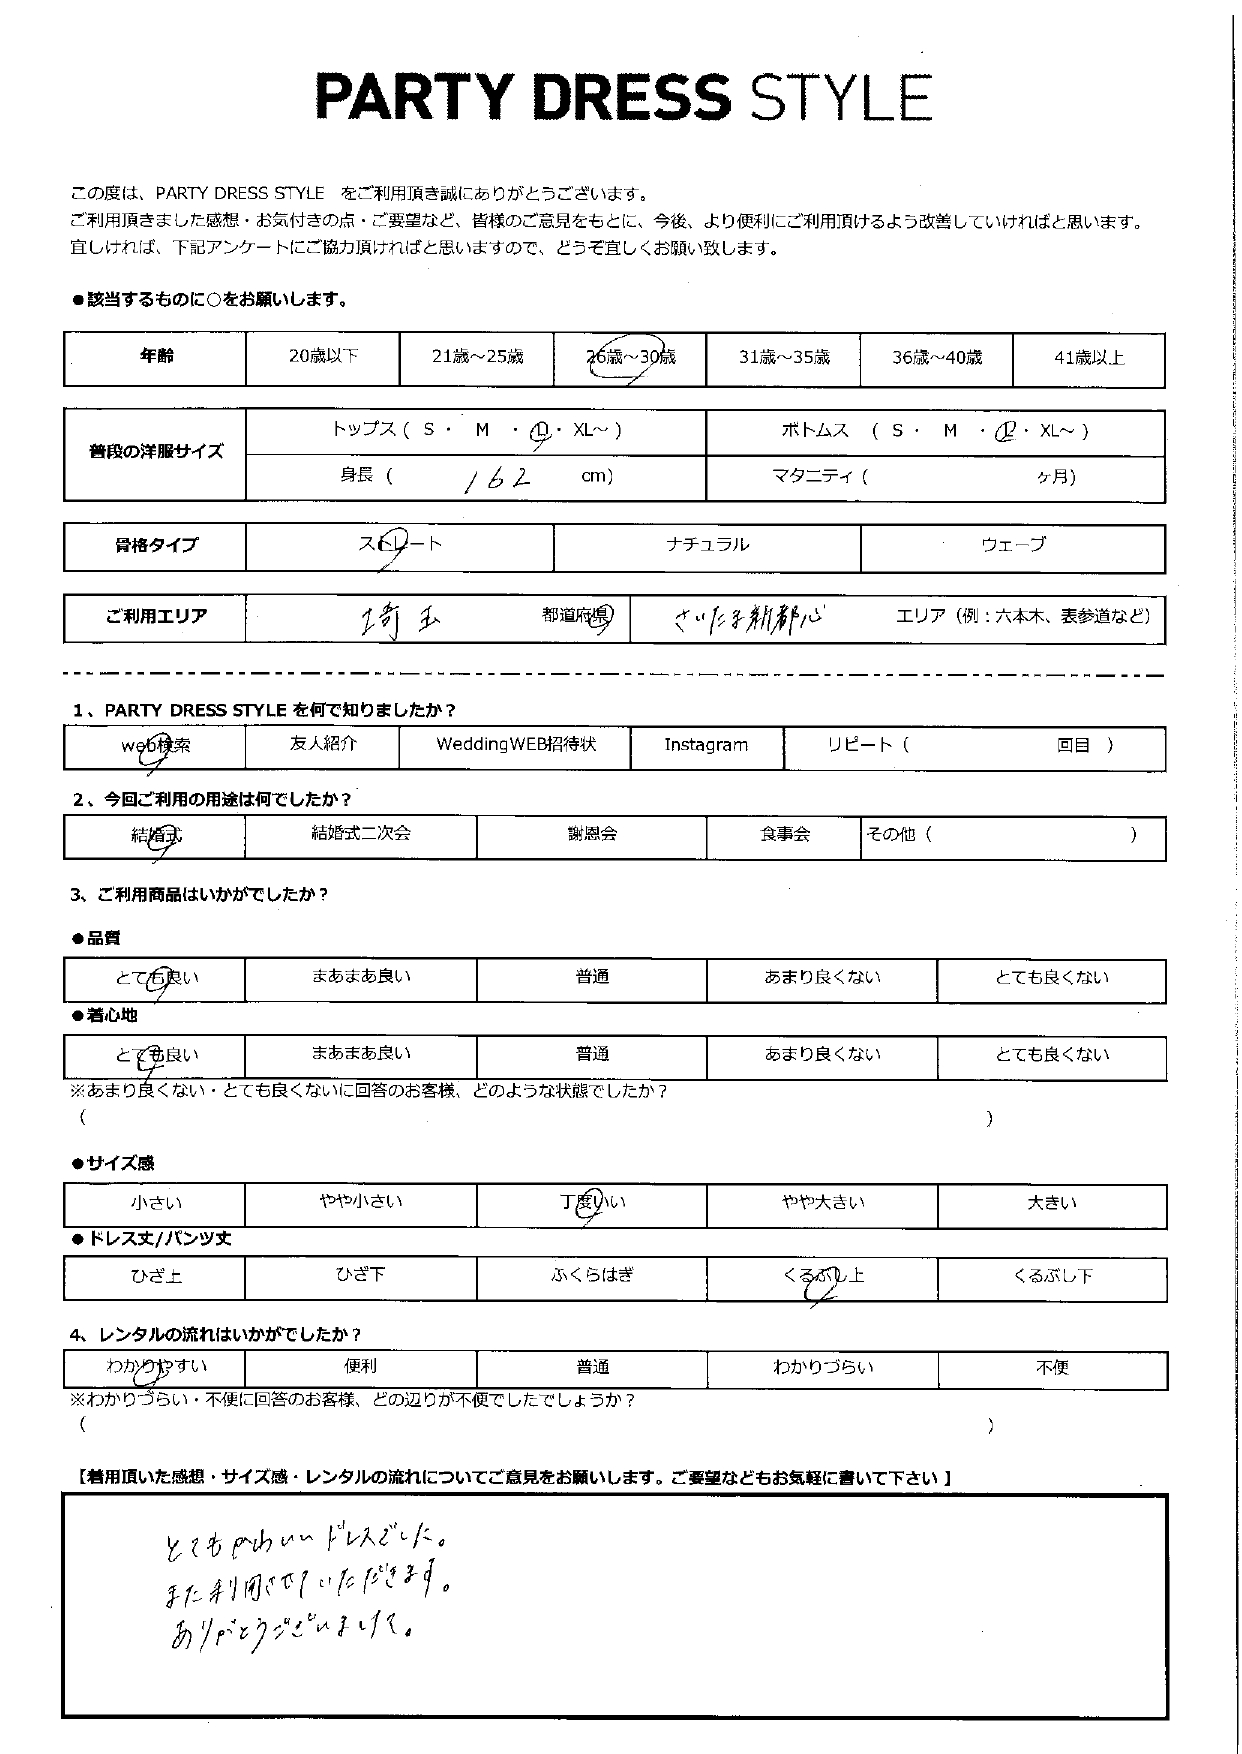 PARTY DRESS STYLE
この度は、PARTY DRESS STYLE をご利用頂き誠にありがとうございます。
ご利用頂きました感想・お気付きの点・ご要望など、皆様のご意見をもとに、今後、より便利にご利用頂けるよう改善していければと思います。
宜しければ、下記アンケートにご協力頂ければと思いますので、どうぞ宜しくお願い致します。
●該当するものに○をお願いします。
年齢 20歳以下 21歳～25歳 26歳～30歳 31歳～35歳 36歳～40歳 41歳以上
普段の洋服サイズ トップス ( S ・ M ・ L ・ XL～ ) ボトムス ( S ・ M ・ L ・ XL～ )
身長 ( 162 cm) マタニティ ( ヶ月)
骨格タイプ ストレート ナチュラル ウェーブ
ご利用エリア 埼玉 都道府県 さいたま新都心 エリア（例：六本木、表参道など）
1、PARTY DRESS STYLE を何で知りましたか？
web検索 友人紹介 WeddingWEB招待状 Instagram リピート ( 回目 )
2、今回ご利用の用途は何でしたか？
結婚式 結婚式二次会 謝恩会 食事会 その他 ( )
3、ご利用商品はいかがでしたか？
●品質
とても良い まあまあ良い 普通 あまり良くない とても良くない
●着心地
とても良い まあまあ良い 普通 あまり良くない とても良くない
※あまり良くない・とても良くないに回答のお客様、どのような状態でしたか？
( )
●サイズ感
小さい やや小さい 丁度いい やや大きい 大きい
●ドレス丈/パンツ丈
ひざ上 ひざ下 ふくらはぎ くるぶし上 くるぶし下
4、レンタルの流れはいかがでしたか？
わかりやすい 便利 普通 わかりづらい 不便
※わかりづらい・不便に回答のお客様、どの辺りが不便でしたでしょうか？
( )
【着用頂いた感想・サイズ感・レンタルの流れについてご意見をお願いします。ご要望などもお気軽に書いて下さい 】
とてもかわいいドレスでした。
また利用させていただきます。
ありがとうございました。